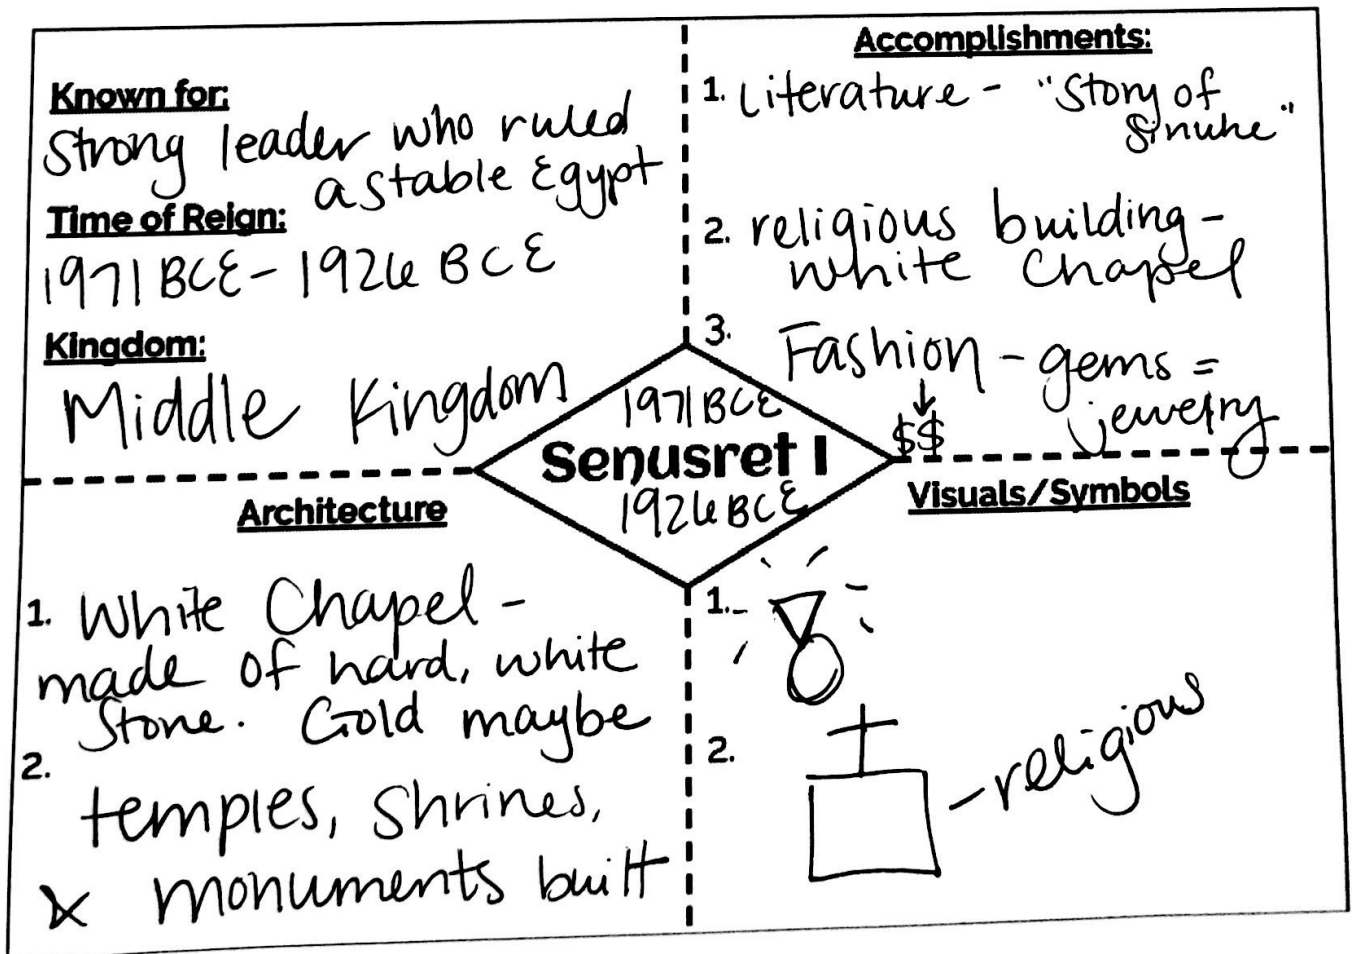 Known for:
Strong leader who ruled
a stable Egypt
Time of Reign:
1971 BCE - 1926 BCE
Kingdom:
Middle Kingdom
Accomplishments:
1. Literature - "Story of
Sinuhe"
2. religious building -
white Chapel
3. Fashion - gems =
jewelry
$$
1971 BCE
Senusret I
1926 BCE
Architecture
1. White Chapel -
made of hard, white
Stone. Gold maybe
2.
temples, shrines,
& monuments built
Visuals/Symbols
1.
2.
- religious